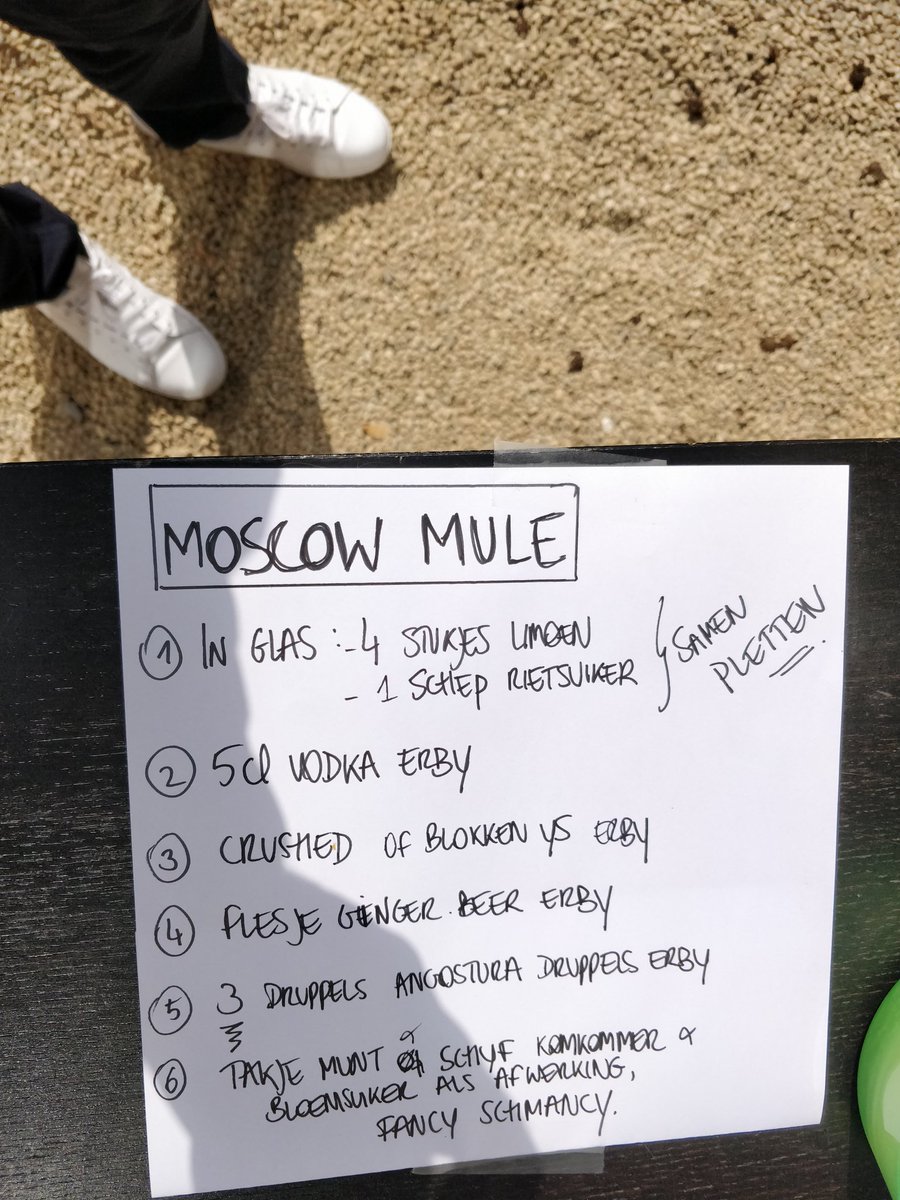 MOSCOW MULE
① IN GLAS : - 4 STUKJES LIMOEN
- 1 SCHEP RIETSUIKER
} SAMEN
PLETTEN.
② 5cl VODKA ERBY
③ CRUSHED OF BLOKKEN YS ERBY
④ FLESJE GINGER BEER ERBY
⑤ 3 DRUPPELS ANGOSTURA DRUPPELS ERBY
⑥ TAKJE MUNT & SCHYF KOMKOMMER &
BLOEMSUIKER ALS AFWERKING,
FANCY SCHMANCY.